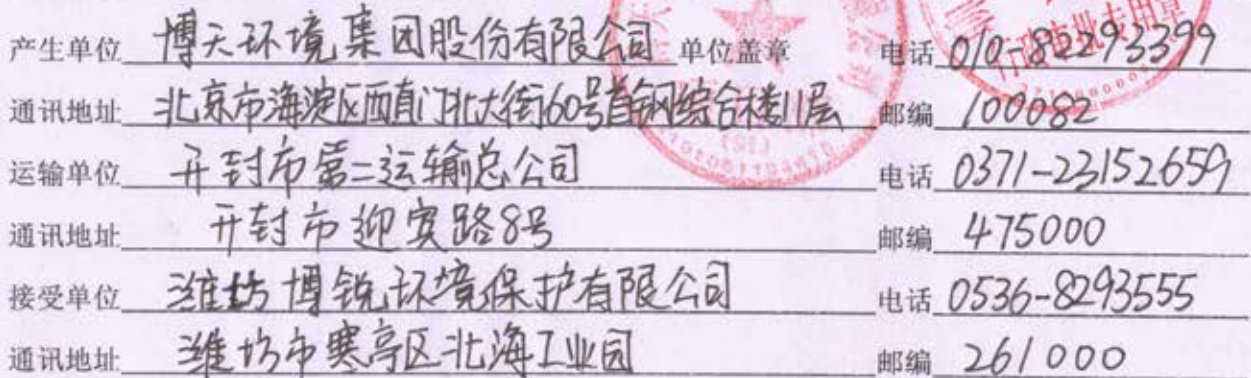 产生单位 博天环境集团股份有限公司 单位盖章 电话 010-82293399
通讯地址 北京市海淀区西直门北大街60号首钢综合楼11层 邮编 100082
运输单位 开封市第二运输总公司 电话 0371-23152659
通讯地址 开封市迎宾路8号 邮编 475000
接受单位 潍坊博锐环境保护有限公司 电话 0536-8293555
通讯地址 潍坊市寒亭区北海工业园 邮编 261000
行政审批专用章